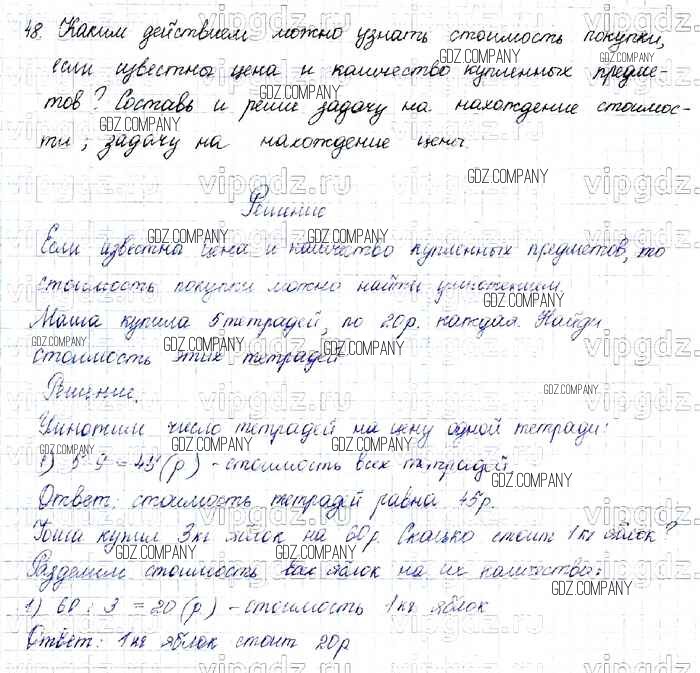 48. Каким действием можно узнать стоимость покупки,
если известны цена и количество купленных предме-
тов? Составь и реши задачу на нахождение стоимос-
ти; задачу на нахождение цены.
Решение
Если известны цена и количество купленных предметов, то
стоимость покупки можно найти умножением.
Маша купила 5 тетрадей, по 20р. каждая. Найди
стоимость этих тетрадей
Решение.
Умножим число тетрадей на цену одной тетради:
1) 5·9=45(р) - стоимость всех тетрадей.
Ответ: стоимость тетрадей равна 45р.
Гоша купил 3кг яблок на 60р. Сколько стоит 1кг яблок?
Разделим стоимость всех яблок на их количество:
1) 60:3=20(р) - стоимость 1кг яблок
Ответ: 1кг яблок стоит 20р
vipgdz.ru
GDZ.COMPANY